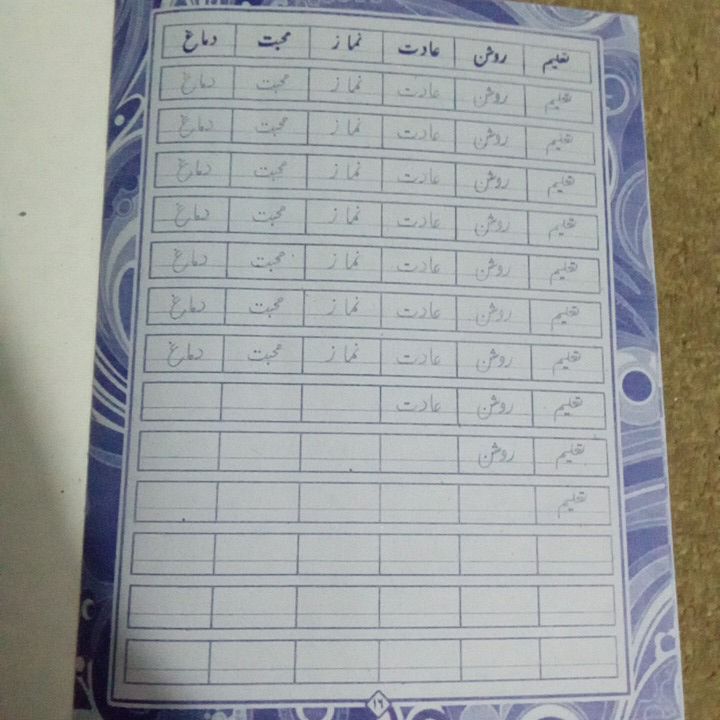 تعلیم روشن عادت نماز محبت دماغ
تعلیم روشن عادت نماز محبت دماغ
تعلیم روشن عادت نماز محبت دماغ
تعلیم روشن عادت نماز محبت دماغ
تعلیم روشن عادت نماز محبت دماغ
تعلیم روشن عادت نماز محبت دماغ
تعلیم روشن عادت نماز محبت دماغ
تعلیم روشن عادت نماز محبت دماغ
تعلیم روشن عادت
تعلیم روشن
تعلیم
۱۶